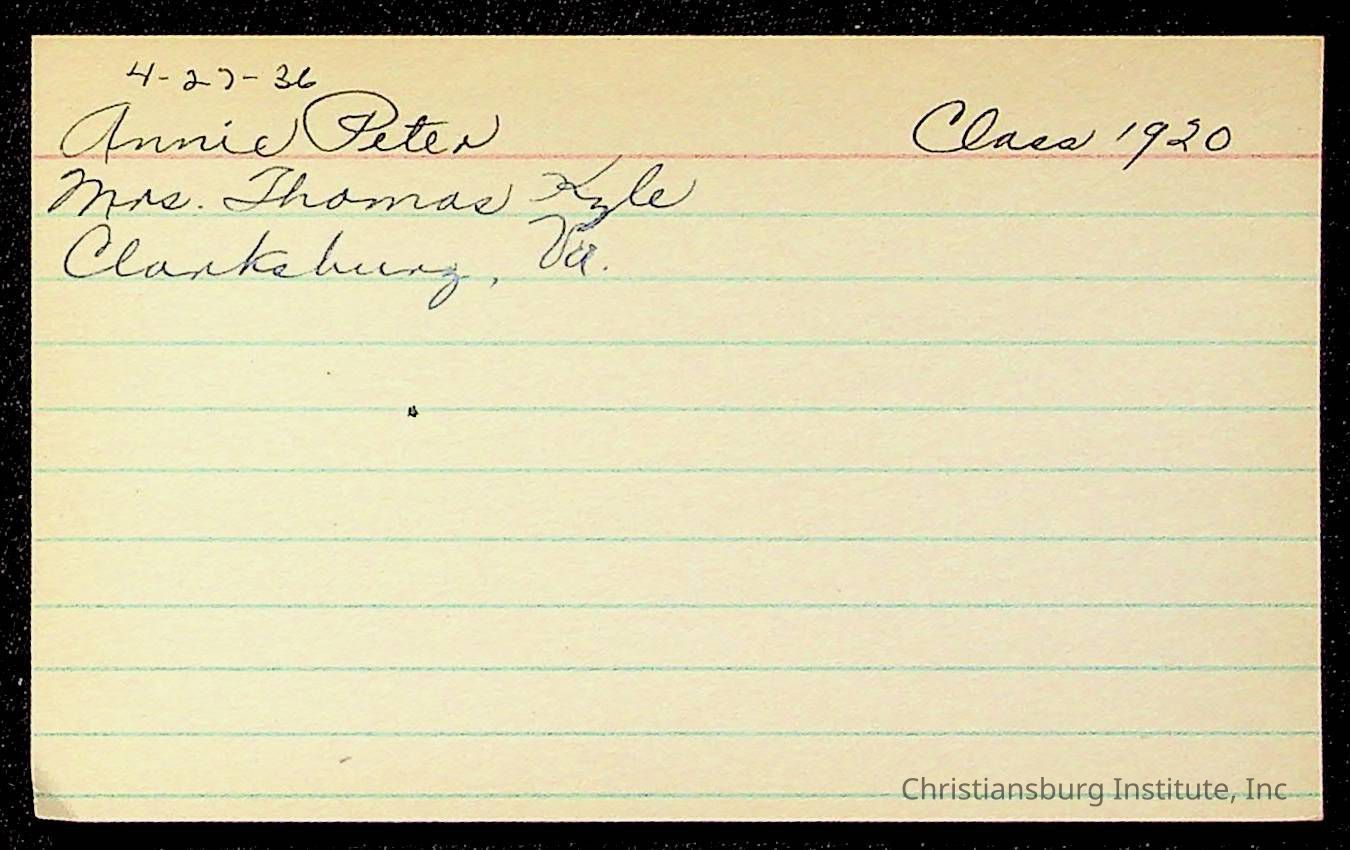 4-27-36
Annie Peter Class 1920
Mrs. Thomas Kyle
Clarksburg, Va.
Christiansburg Institute, Inc